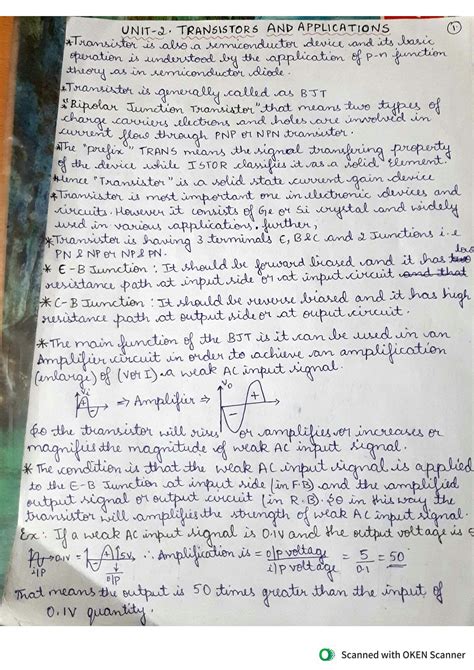 UNIT-2. TRANSISTORS AND APPLICATIONS ①
*Transistor is also a semiconductor device and its basic
operation is understood by the application of p-n function
theory as in semiconductor diode.
*Transistor is generally called as BJT
"Bipolar Junction Transistor" that means two types of
charge carriers electrons and holes are involved in
current flow through PNP or NPN transistor.
*The "prefix" TRANS means the signal transfering property
of the device while ISTOR classifies it as a solid element.
*Hence "Transistor" is a solid state current gain device
*Transistor is most important one in electronic devices and
circuits. However it consists of Ge or Si crystal and widely
used in various applications. further,
*Transistor is having 3 terminals E, B & C and 2 Junctions i.e
PN & NP or NP & PN.
* E-B Junction : It should be forward biased and it has low
resistance path at input side or at input circuit and that
* C-B Junction : It should be reverse biased and it has high
resistance path at output side or at ouput circuit.
*The main function of the BJT is it can be used in an
Amplifier circuit in order to achieve an amplification
(enlarge) of (V or I) a weak AC input signal.
Vi + - ⇒ Amplifier ⇒ Vo - +
So the transistor will rises or amplifies or increases or
magnifies the magnitude of weak AC input signal.
* The condition is that the weak AC input signal is applied
to the E-B Junction at input side (in F.B) and the amplified
output signal or output circuit (in R.B). So in this way the
transistor will amplifies the strength of weak AC input signal.
Ex: If a weak AC input signal is 0.1V and the output voltage is 5
0.1V = 5V ∴ Amplification is = O/P voltage / i/P voltage = 5 / 0.1 = 50
i/P O/P
That means the output is 50 times greater than the input of
0.1V quantity.
Scanned with OKEN Scanner